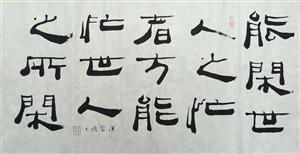 能閑世
人之忙
者方能
忙世人
之所閑